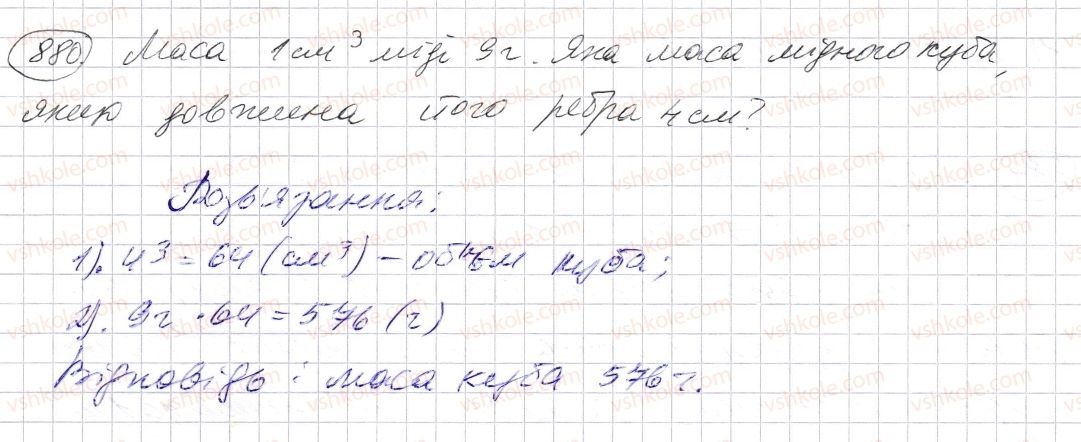 880. Маса 1 см³ міді 9 г. Яка маса мідного куба,
якщо довжина його ребра 4 см?
Розв'язання:
1). 4³ = 64 (см³) – об'єм куба;
2). 9 г · 64 = 576 (г)
Відповідь: маса куба 576 г.